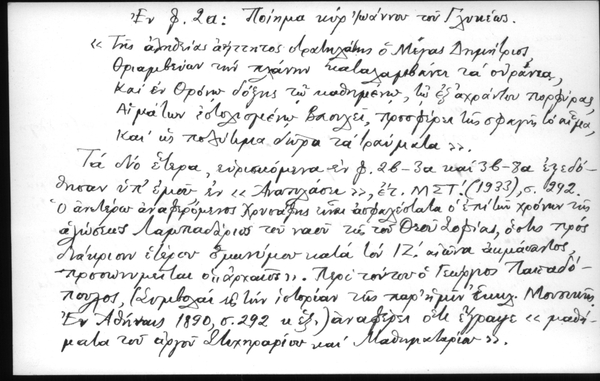 Ἐν φ. 2α: Ποίημα κὺρ Ἰωάννου τοῦ Γλυκέως.
« Τῆς ἀληθείας ἀήττητος στρατηλάτης ὁ Μέγας Δημήτριος
Θριαμβεύων τὴν πλάνην καταλαμβάνει τὰ οὐράνια,
Καὶ ἐν Θρόνῳ δόξης τῷ καθημένῳ, τῷ ἐξ ἀχράντου πορφύρας,
Αἱμάτων ἐστολισμένῳ βασιλεῖ, προσφέρει τῆς σφαγῆς τὸ αἷμα,
Καὶ ὡς πολύτιμα δῶρα τὰ τραύματα ».
Τὰ δύο ἕτερα, εὑρισκόμενα ἐν φ. 2β-3α καὶ 3β-8α ἐξεδό-
θησαν ὑπ' ἐμοῦ ἐν « », ἔτ. ΜΣΤ΄ (1933), σ. 292.
Ὁ ἀνωτέρω ἀναφερόμενος Χρυσάφης εἶναι ἀσφαλέστατα ὁ ἐπὶ τῶν χρόνων τῆς
ἁλώσεως Λαμπαδάριος τοῦ ναοῦ τῆς τοῦ Θεοῦ Σοφίας, ὅστις πρὸς
διάκρισιν ἑτέρου ὁμωνύμου κατὰ τὸν ΙΖ΄. αἰῶνα ἀκμάσαντος,
προσωνυμεῖται ὁ « ἀρχαῖος ». Περὶ τούτου ὁ Γεώργιος Παπαδό-
πουλος, (Συμβολαὶ εἰς τὴν ἱστορίαν τῆς παρ' ἡμῖν Ἐκκλ. Μουσικῆς,
Ἐν Ἀθήναις 1890, σ. 292 κ ἑξ.) ἀναφέρει ὅτι ἔγραψε « μαθή-
ματα τοῦ ἀργοῦ Στιχηραρίου καὶ Μαθηματαρίου ».